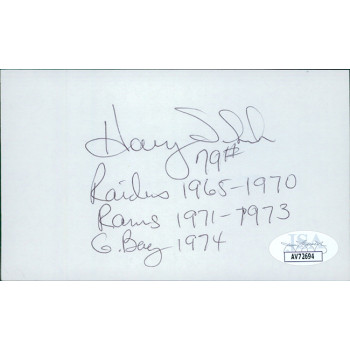 Harry Schuh
79#
Raiders 1965-1970
Rams 1971-1973
G. Bay 1974
JSA
AV72694